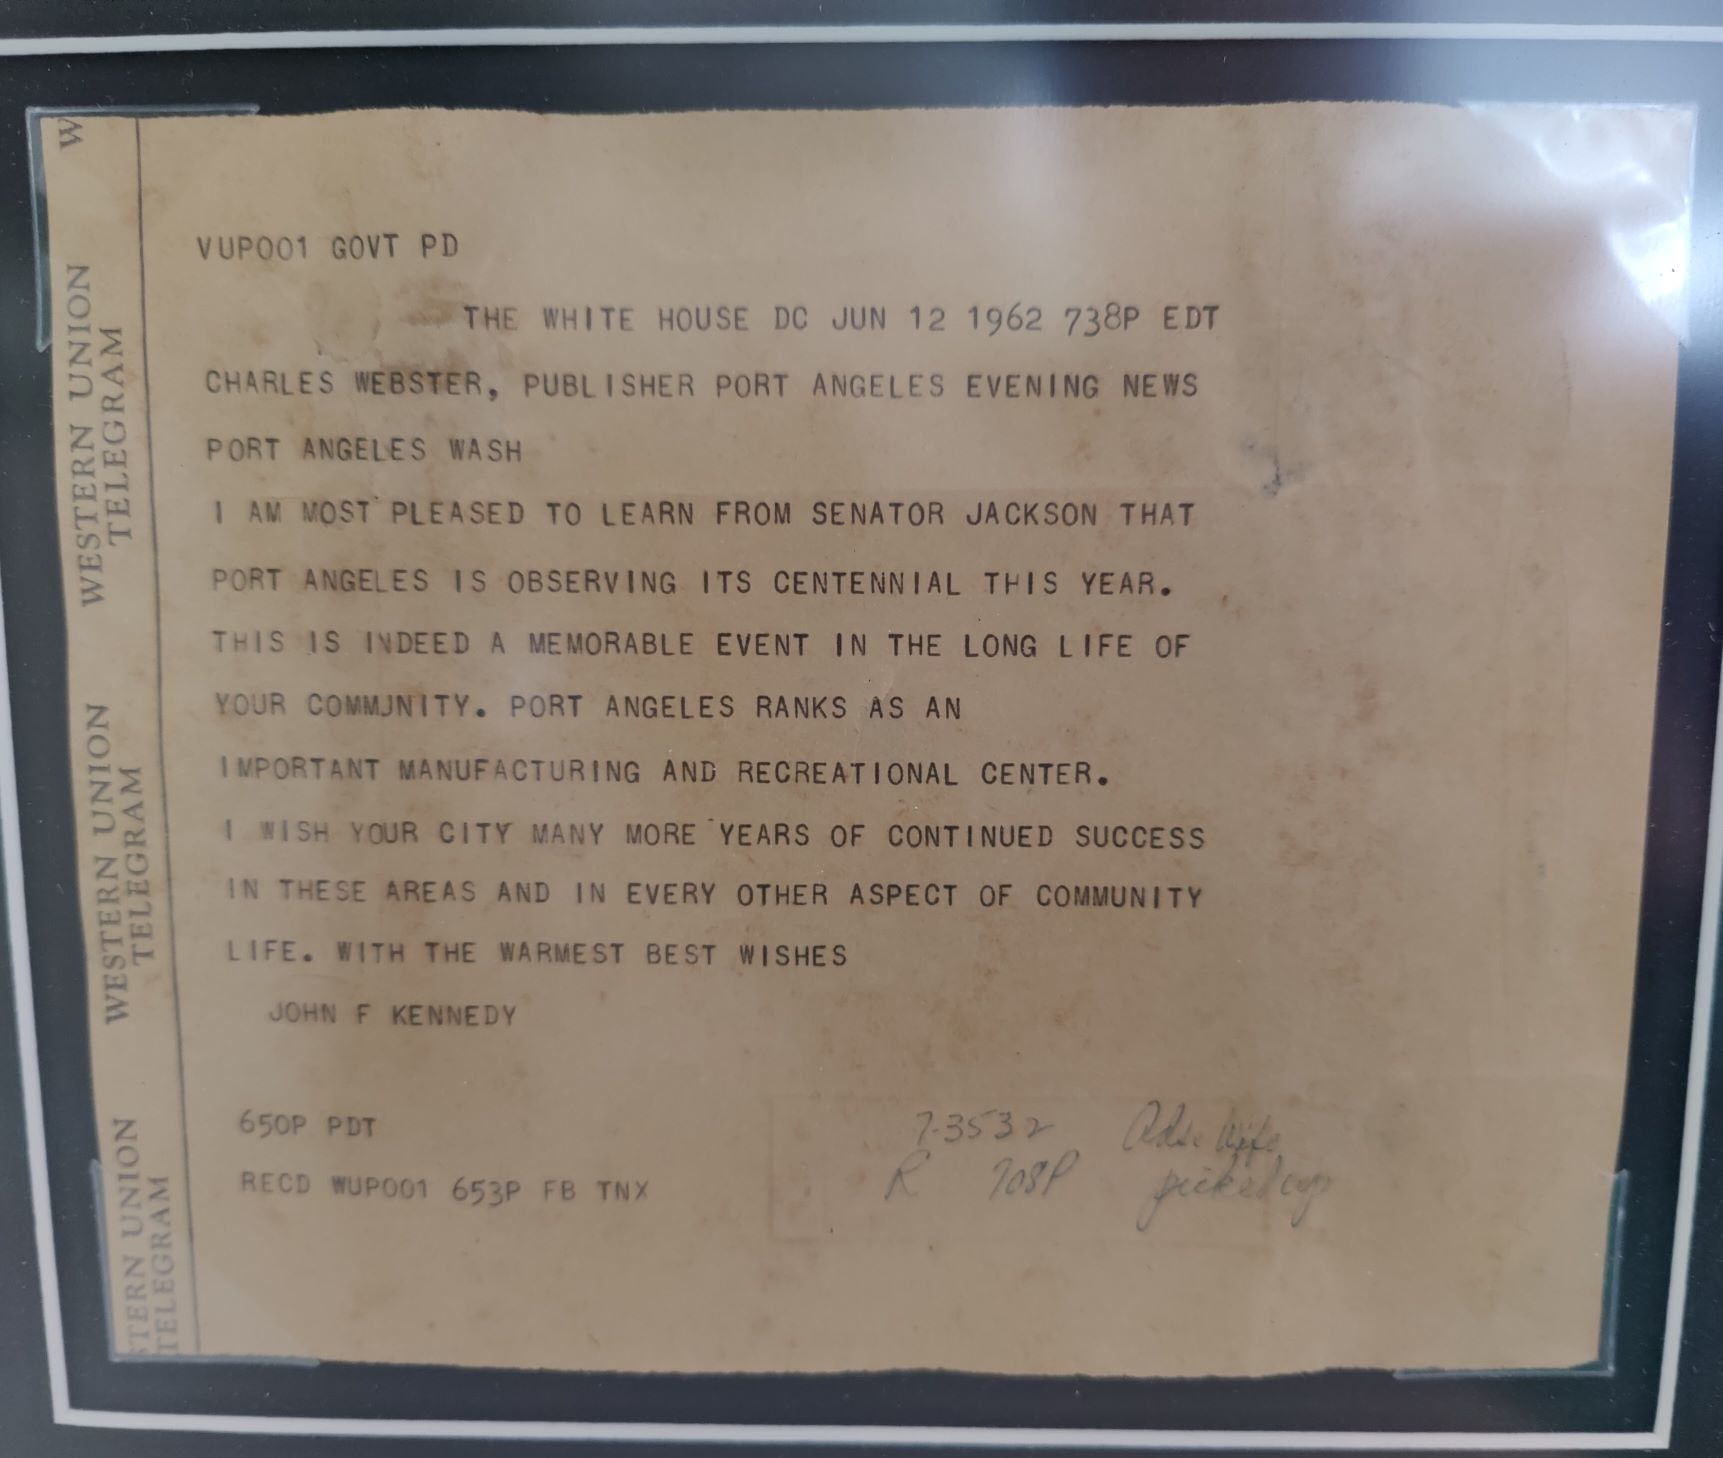 W
WESTERN UNION
TELEGRAM
WESTERN UNION
TELEGRAM
TERN UNION
TELEGRAM
VUP001 GOVT PD
THE WHITE HOUSE DC JUN 12 1962 738P EDT
CHARLES WEBSTER, PUBLISHER PORT ANGELES EVENING NEWS
PORT ANGELES WASH
I AM MOST PLEASED TO LEARN FROM SENATOR JACKSON THAT
PORT ANGELES IS OBSERVING ITS CENTENNIAL THIS YEAR.
THIS IS INDEED A MEMORABLE EVENT IN THE LONG LIFE OF
YOUR COMMJNITY. PORT ANGELES RANKS AS AN
IMPORTANT MANUFACTURING AND RECREATIONAL CENTER.
I WISH YOUR CITY MANY MORE YEARS OF CONTINUED SUCCESS
IN THESE AREAS AND IN EVERY OTHER ASPECT OF COMMUNITY
LIFE. WITH THE WARMEST BEST WISHES
JOHN F KENNEDY
650P PDT
RECD WUP001 653P FB TNX
7-3532 wife
R 708P picked up